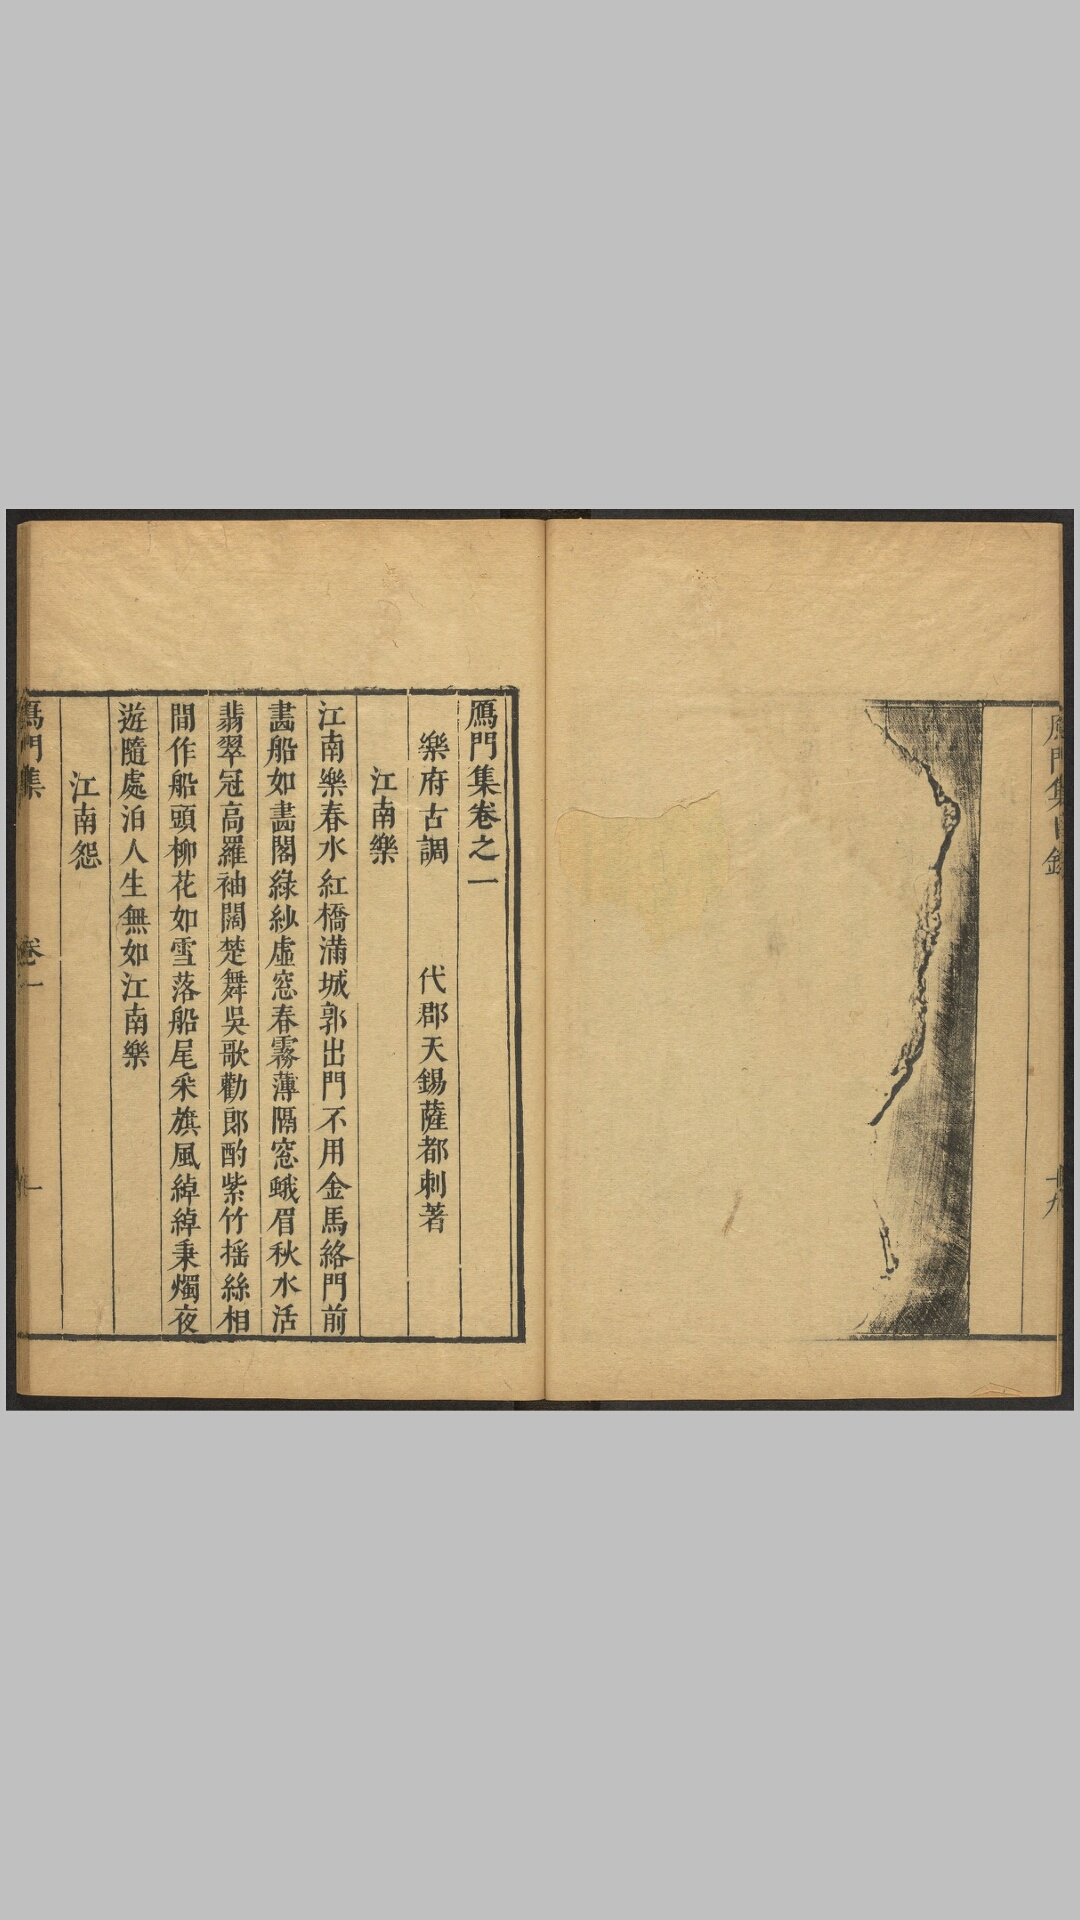 鴈門集卷之一
樂府古調 代郡天錫薩都刺著
江南樂
江南樂春水紅橋滿城郭出門不用金馬絡門前
畵船如畵閣綠紗虛窓春霧薄隔窓蛾眉秋水活
翡翠冠高羅袖闊楚舞吳歌勸郎酌紫竹揺絲相
間作船頭柳花如雪落船尾采旗風綽綽秉燭夜
遊隨處泊人生無如江南樂
江南怨
鴈門集 卷一 一